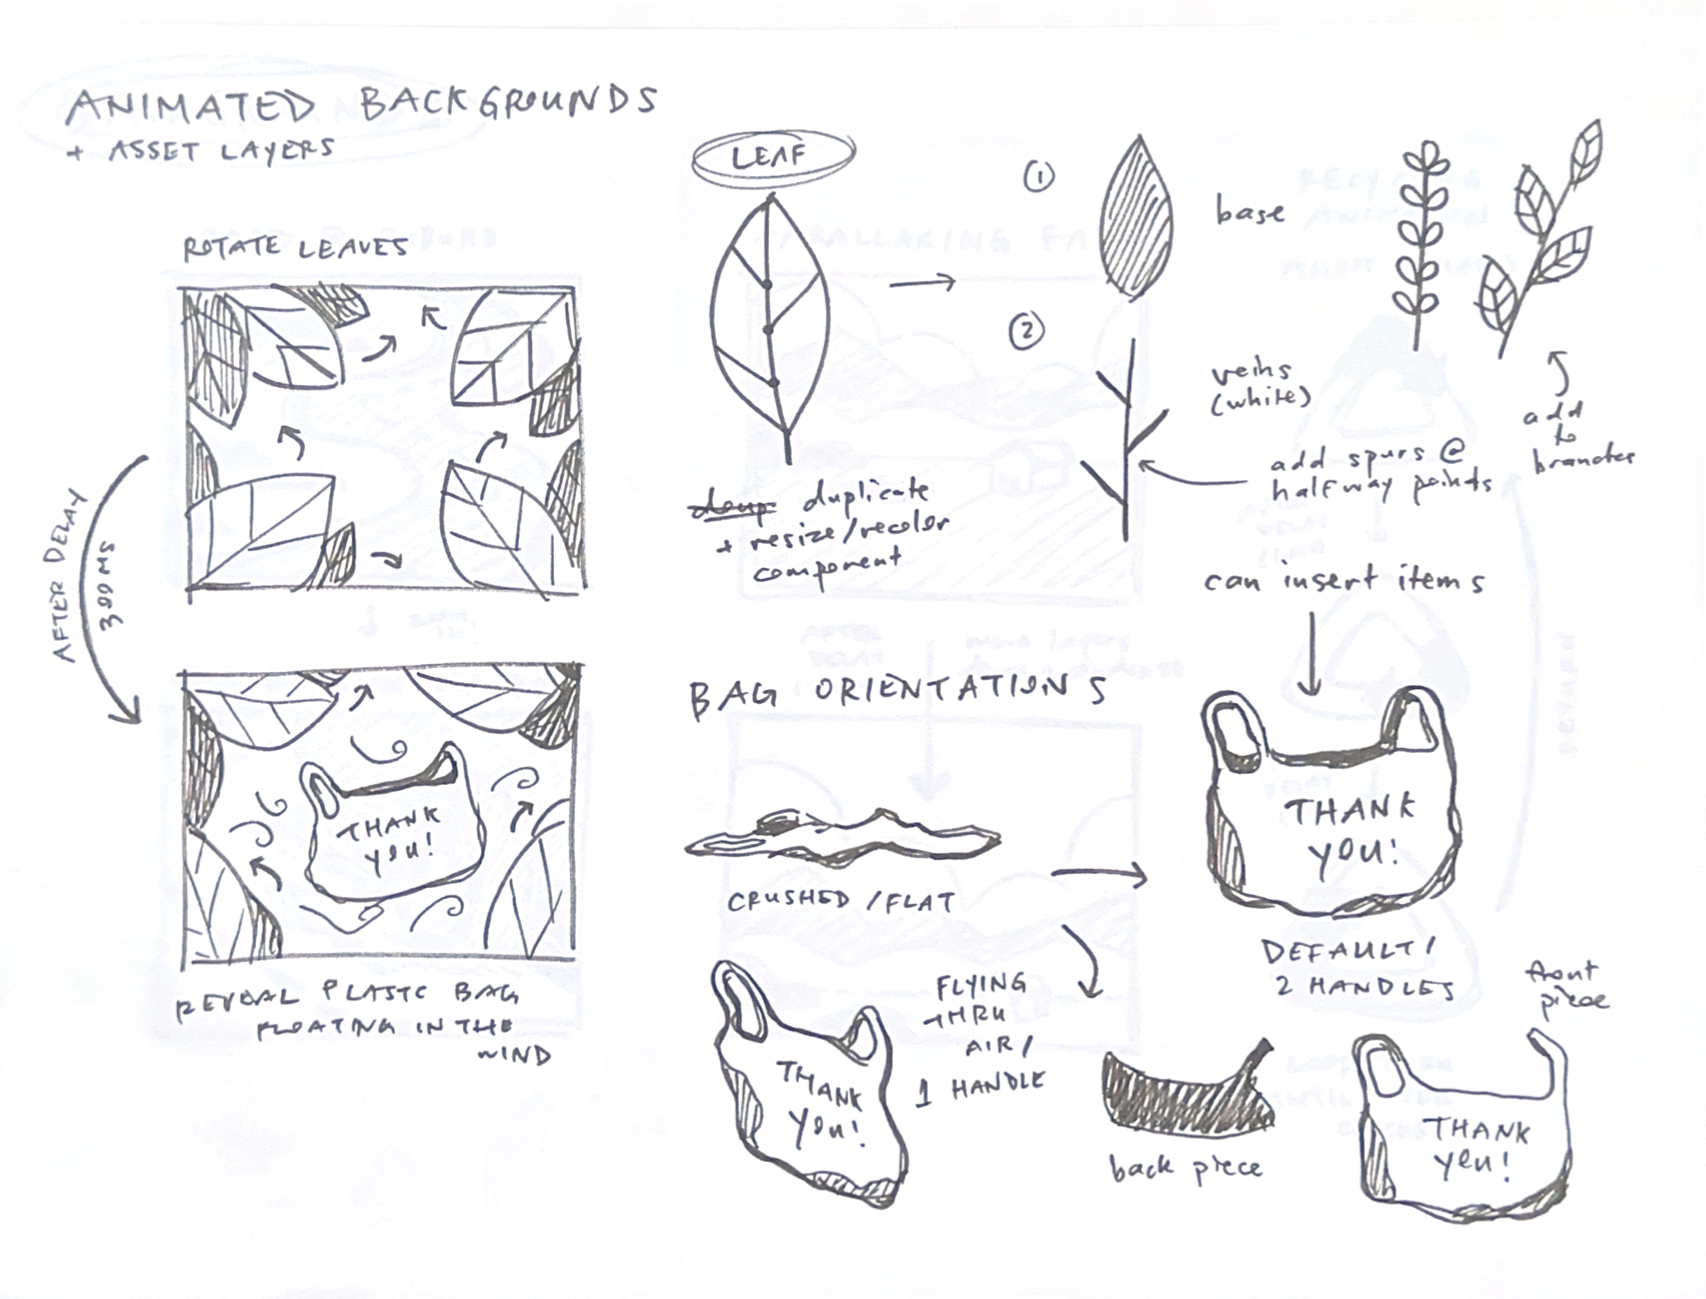 ANIMATED BACKGROUNDS
+ ASSET LAYERS
ROTATE LEAVES
AFTER DELAY
300 MS
THANK
YOU!
REVEAL PLASTC BAG
FLOATING IN THE
WIND
LEAF
duplicate
+ resize/recolor
component
1
base
2
veins
(white)
add spurs @
halfway points
add
to
branches
can insert items
BAG ORIENTATIONS
CRUSHED / FLAT
THANK
YOU!
DEFAULT /
2 HANDLES
FLYING
THRU
AIR /
1 HANDLE
THANK
YOU!
back piece
front
piece
THANK
YOU!